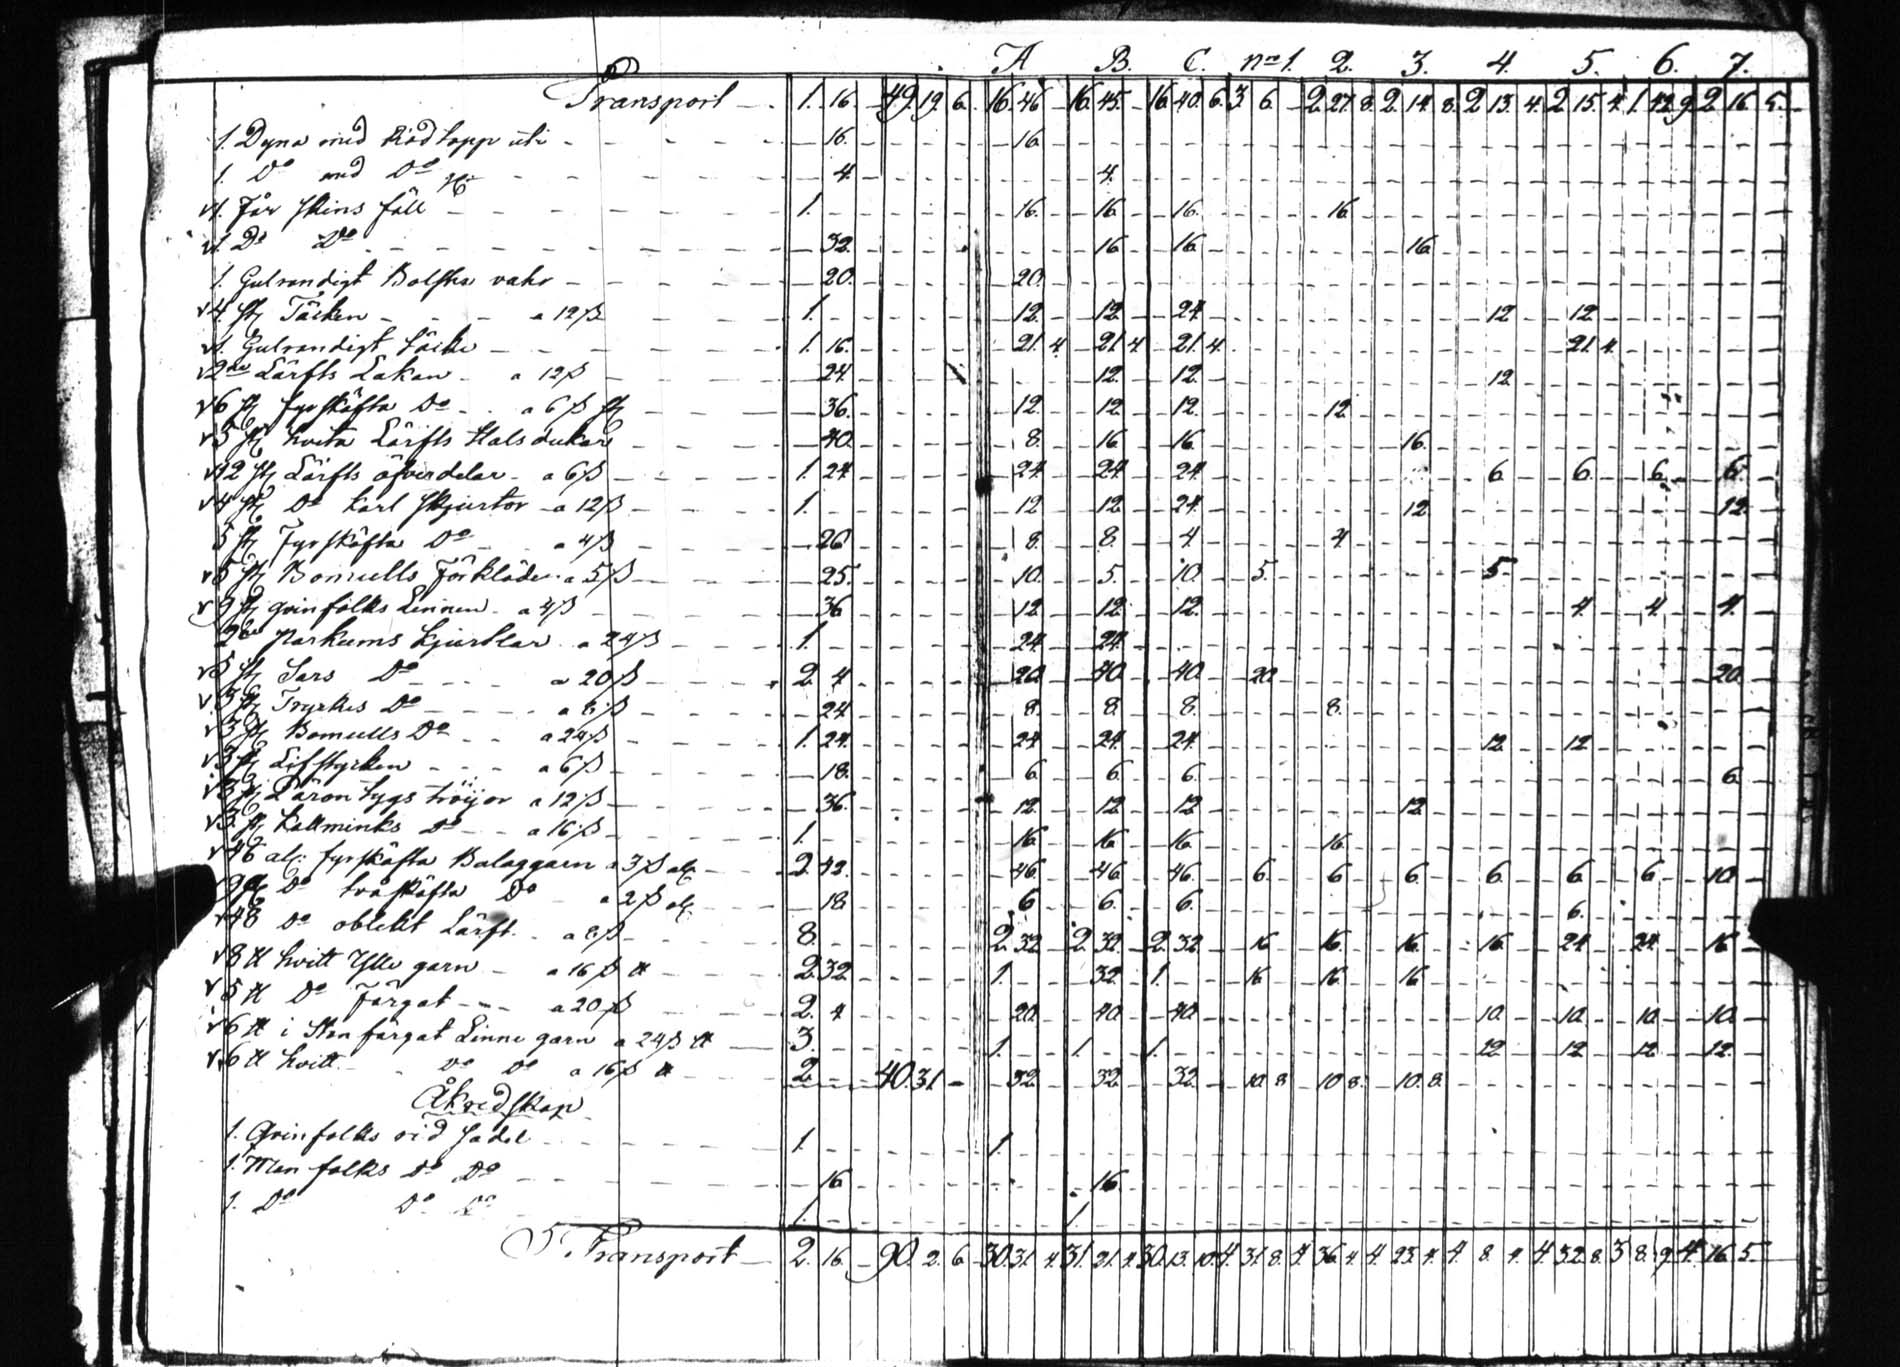 A B. C. nro 1. 2. 3. 4. 5. 6. 7.
Transport 1. 16. 49. 19. 6. 16. 46 16. 45. 16. 40. 6. 3. 6. 2. 27. 8. 2. 14. 8. 2. 13. 4. 2. 15. 4. 1. 42. 9. 2. 16. 5.
1. Dyna med uti 16. 16.
1. Do med Do 4. 4.
1. Får skins fäll 1. 16. 16. 16. 16.
1. Do Do 32. 16 16. 16.
1. Gulrandigt Bolster vahr 20. 20.
4 st Täcken a 12 ß 1. 12. 12. 24. 12. 12.
1. Gulrandigt 1. 16. 21. 4. 21. 4 21. 4. 21. 4.
2ne Lärfts Lakan a 12 ß 24. 12. 12. 12.
6 st fyrskäfta Do a 6 ß st 36. 12. 12. 12. 12.
5 st hvita Lärfts Halsdukar 40. 8. 16. 16. 16.
12 st Lärfts öfverdelar a 6 ß 1. 24. 24. 24. 24. 6. 6. 6. 6.
4 st Do karl skjortor a 12 ß 1. 12 12. 24. 12. 12.
5 st Fyrskäfta Do a 4 ß 20 8. 8. 4. 4.
5 st Bomulls Förkläden a 5 ß 25. 10. 5. 10. 5. 5.
9 st qvinfolks Linnen a 4 ß 36 12. 12. 12. 4. 4. 4.
2ne Parkums kjortlar a 24 ß 1. 24. 24.
5 st Sars Do a 20 ß 2. 4 20. 40. 40. 20. 20.
3 st Tryckes Do a 8 ß 24 8. 8. 8. 8.
3 st Bomulls Do a 24 ß 1. 24. 24. 24. 24. 12. 12.
3 st Lifstycken a 6 ß 18. 6. 6. 6. 6.
3 st tygs tröijor a 12 ß 36. 12. 12. 12. 12.
3 st kallminks Do a 16 ß 1. 16. 16. 16. 16.
46 al: fyrskäfta Balaggarn a 3 ß al. 2. 42. 46. 46. 46. 6. 6. 6. 6. 6. 6. 10.
9 Do tvåskäfta Do a 2 ß al. 18. 6. 6. 6. 6.
48 Do oblekt Lärft a 8 ß 8. 2. 32. 2. 32. 2. 32. 16. 16. 16. 16. 24. 24. 16.
8 ℔ hvitt Ylle garn a 16 ß ℔ 2. 32. 1. 32. 1. 16. 16. 16.
5 ℔ Do Färgat a 20 ß 2. 4. 20. 40. 40. 10. 10. 10. 10.
6 ℔ färgat Linne garn a 24 ß ℔ 3. 1. 1. 1. 12. 12. 12. 12.
6 ℔ hvitt Do Do a 16 ß ℔ 2. 40. 31. 32. 32. 32. 10. 8. 10. 8. 10. 8.
Åkredskap
1. Qvinfolks rid sadel 1. 1.
1. Man folks Do Do 16. 16.
1. Do Do Do 1. 1.
Transport 2. 16. 90. 2. 6. 30. 31. 4. 31. 21. 4. 30. 13. 10. 4. 31. 8. 4. 36. 4. 4. 23. 4. 4. 8. 4. 4. 32. 8. 3. 8. 9. 4. 16. 5.